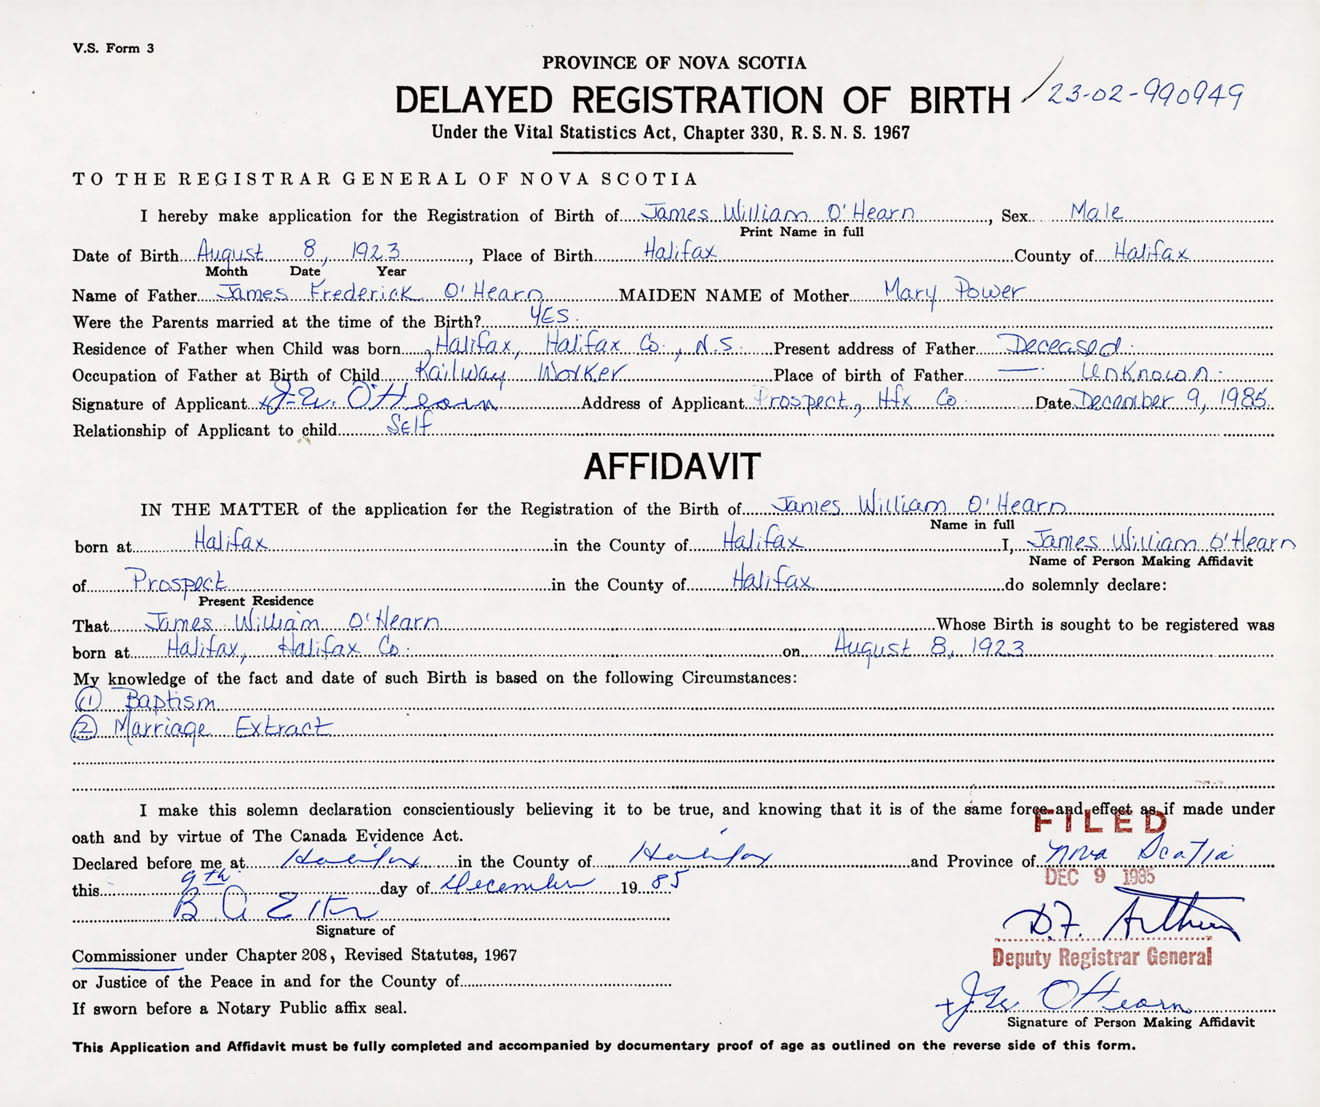 V.S. Form 3
PROVINCE OF NOVA SCOTIA
DELAYED REGISTRATION OF BIRTH 23-02-990949
Under the Vital Statistics Act, Chapter 330, R.S.N.S. 1967
TO THE REGISTRAR GENERAL OF NOVA SCOTIA
I hereby make application for the Registration of Birth of James William O'Hearn, Sex Male
Print Name in full
Date of Birth August 8, 1923, Place of Birth Halifax County of Halifax
Month Date Year
Name of Father James Frederick O'Hearn MAIDEN NAME of Mother Mary Power
Were the Parents married at the time of the Birth? YES.
Residence of Father when Child was born Halifax, Halifax Co., N.S. Present address of Father Deceased.
Occupation of Father at Birth of Child Railway Worker Place of birth of Father — Unknown.
Signature of Applicant J.W. O'Hearn Address of Applicant Prospect, Hfx Co. Date December 9, 1985.
Relationship of Applicant to child Self
AFFIDAVIT
IN THE MATTER of the application for the Registration of the Birth of James William O'Hearn
Name in full
born at Halifax in the County of Halifax I, James William O'Hearn
Name of Person Making Affidavit
of Prospect in the County of Halifax do solemnly declare:
Present Residence
That James William O'Hearn Whose Birth is sought to be registered was
born at Halifax, Halifax Co. on August 8, 1923
My knowledge of the fact and date of such Birth is based on the following Circumstances:
(1) Baptism
(2) Marriage Extract
I make this solemn declaration conscientiously believing it to be true, and knowing that it is of the same force and effect as if made under
FILED
oath and by virtue of The Canada Evidence Act.
Declared before me at Halifax in the County of Halifax and Province of Nova Scotia
DEC 9 1985
this 9th day of December 1985
B A
D.F.
Signature of
Deputy Registrar General
Commissioner under Chapter 208, Revised Statutes, 1967
or Justice of the Peace in and for the County of
J.W. O'Hearn
If sworn before a Notary Public affix seal.
Signature of Person Making Affidavit
This Application and Affidavit must be fully completed and accompanied by documentary proof of age as outlined on the reverse side of this form.